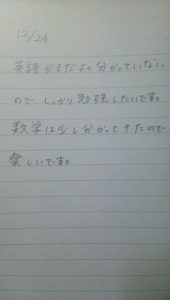 12/24
英語がまだよく分かっていない
ので、しっかり勉強したいです。
数学は少し分かってきたので
楽しいです。